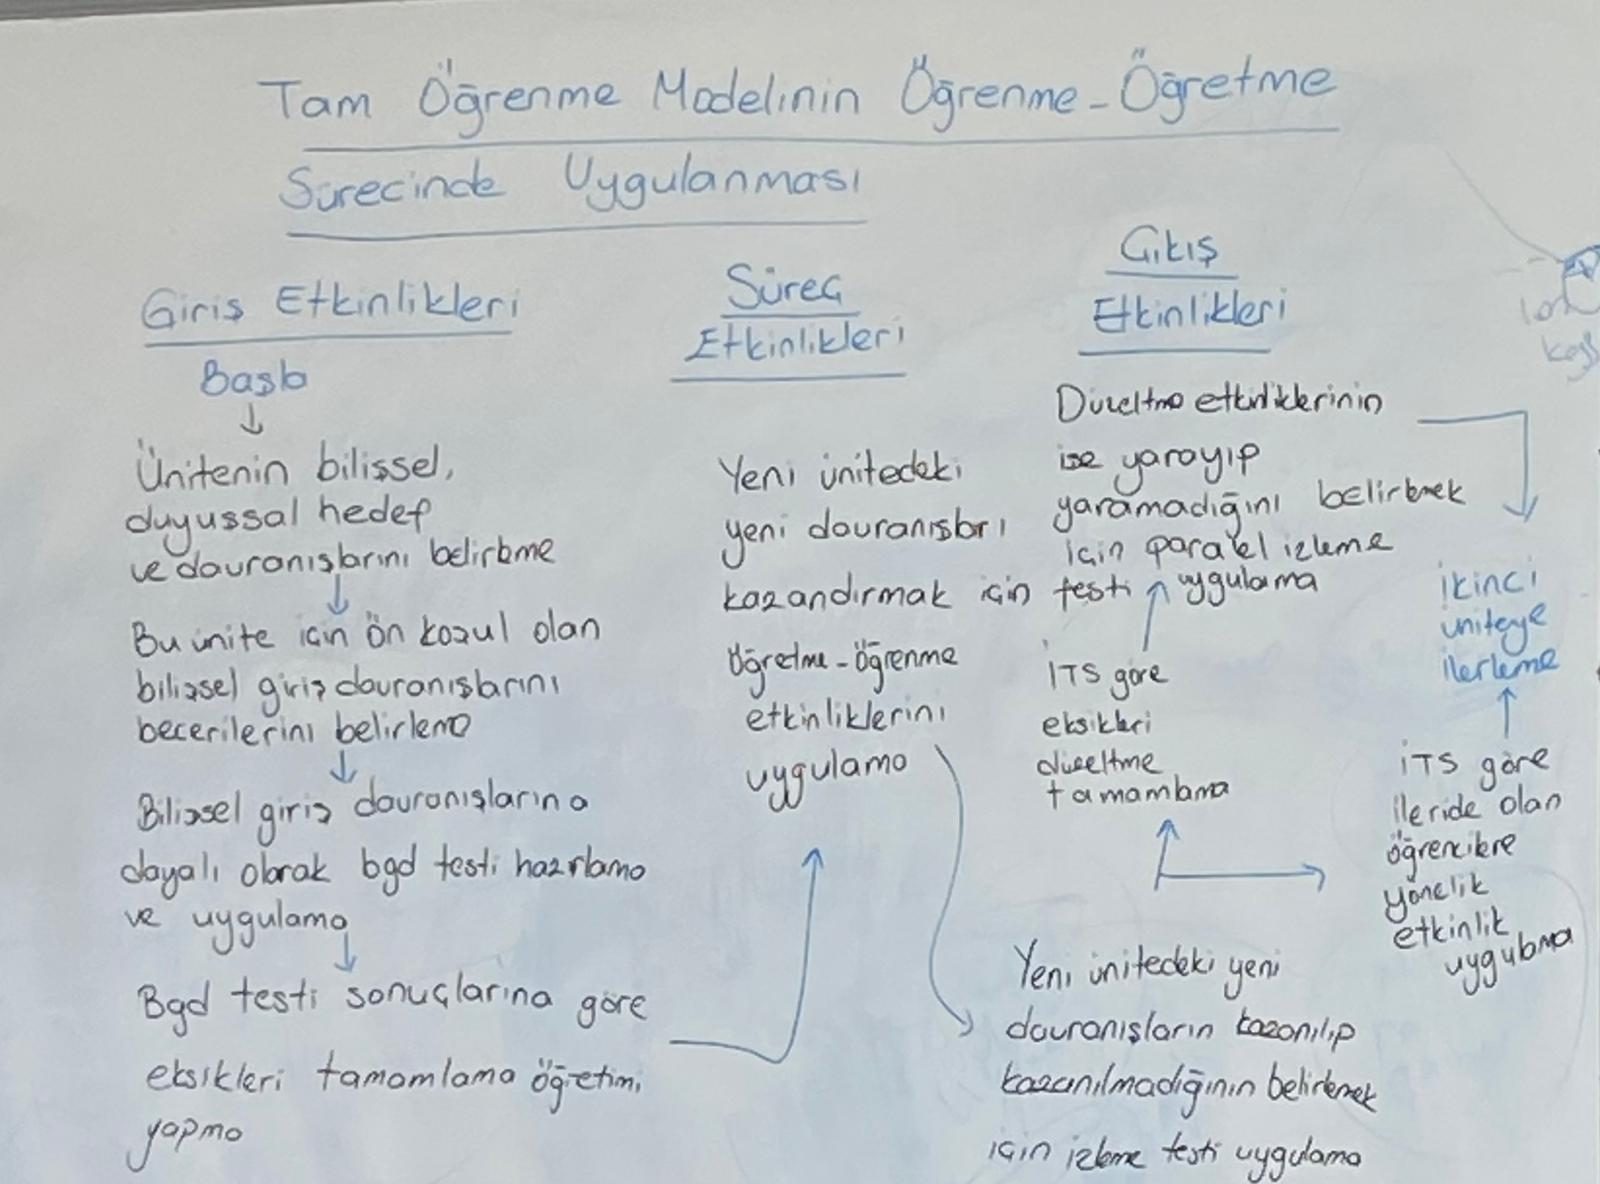 Tam Öğrenme Modelinin Öğrenme - Öğretme
Sürecinde Uygulanması
Giriş Etkinlikleri
Başla
Ünitenin bilişsel,
duyuşsal hedef
ve davranışlarını belirleme
Bu ünite için ön koşul olan
bilişsel giriş davranışlarını
becerilerini belirleme
Bilişsel giriş davranışlarına
dayalı olarak bgd testi hazırlama
ve uygulama
Bgd testi sonuçlarına göre
eksikleri tamamlama öğretimi
yapma
Süreç
Etkinlikleri
Yeni ünitedeki
yeni davranışları
kazandırmak için
Öğretme - Öğrenme
etkinliklerini
uygulama
Çıkış
Etkinlikleri
Düzeltme etkinliklerinin
işe yarayıp
yaramadığını belirlemek
için paralel izleme
testi uygulama
İTS göre
eksikleri
düzeltme
tamamlama
Yeni ünitedeki yeni
davranışların kazanılıp
kazanılmadığının belirlemek
için izleme testi uygulama
İkinci
üniteye
ilerleme
İTS göre
ileride olan
öğrencilere
yönelik
etkinlik
uygulama